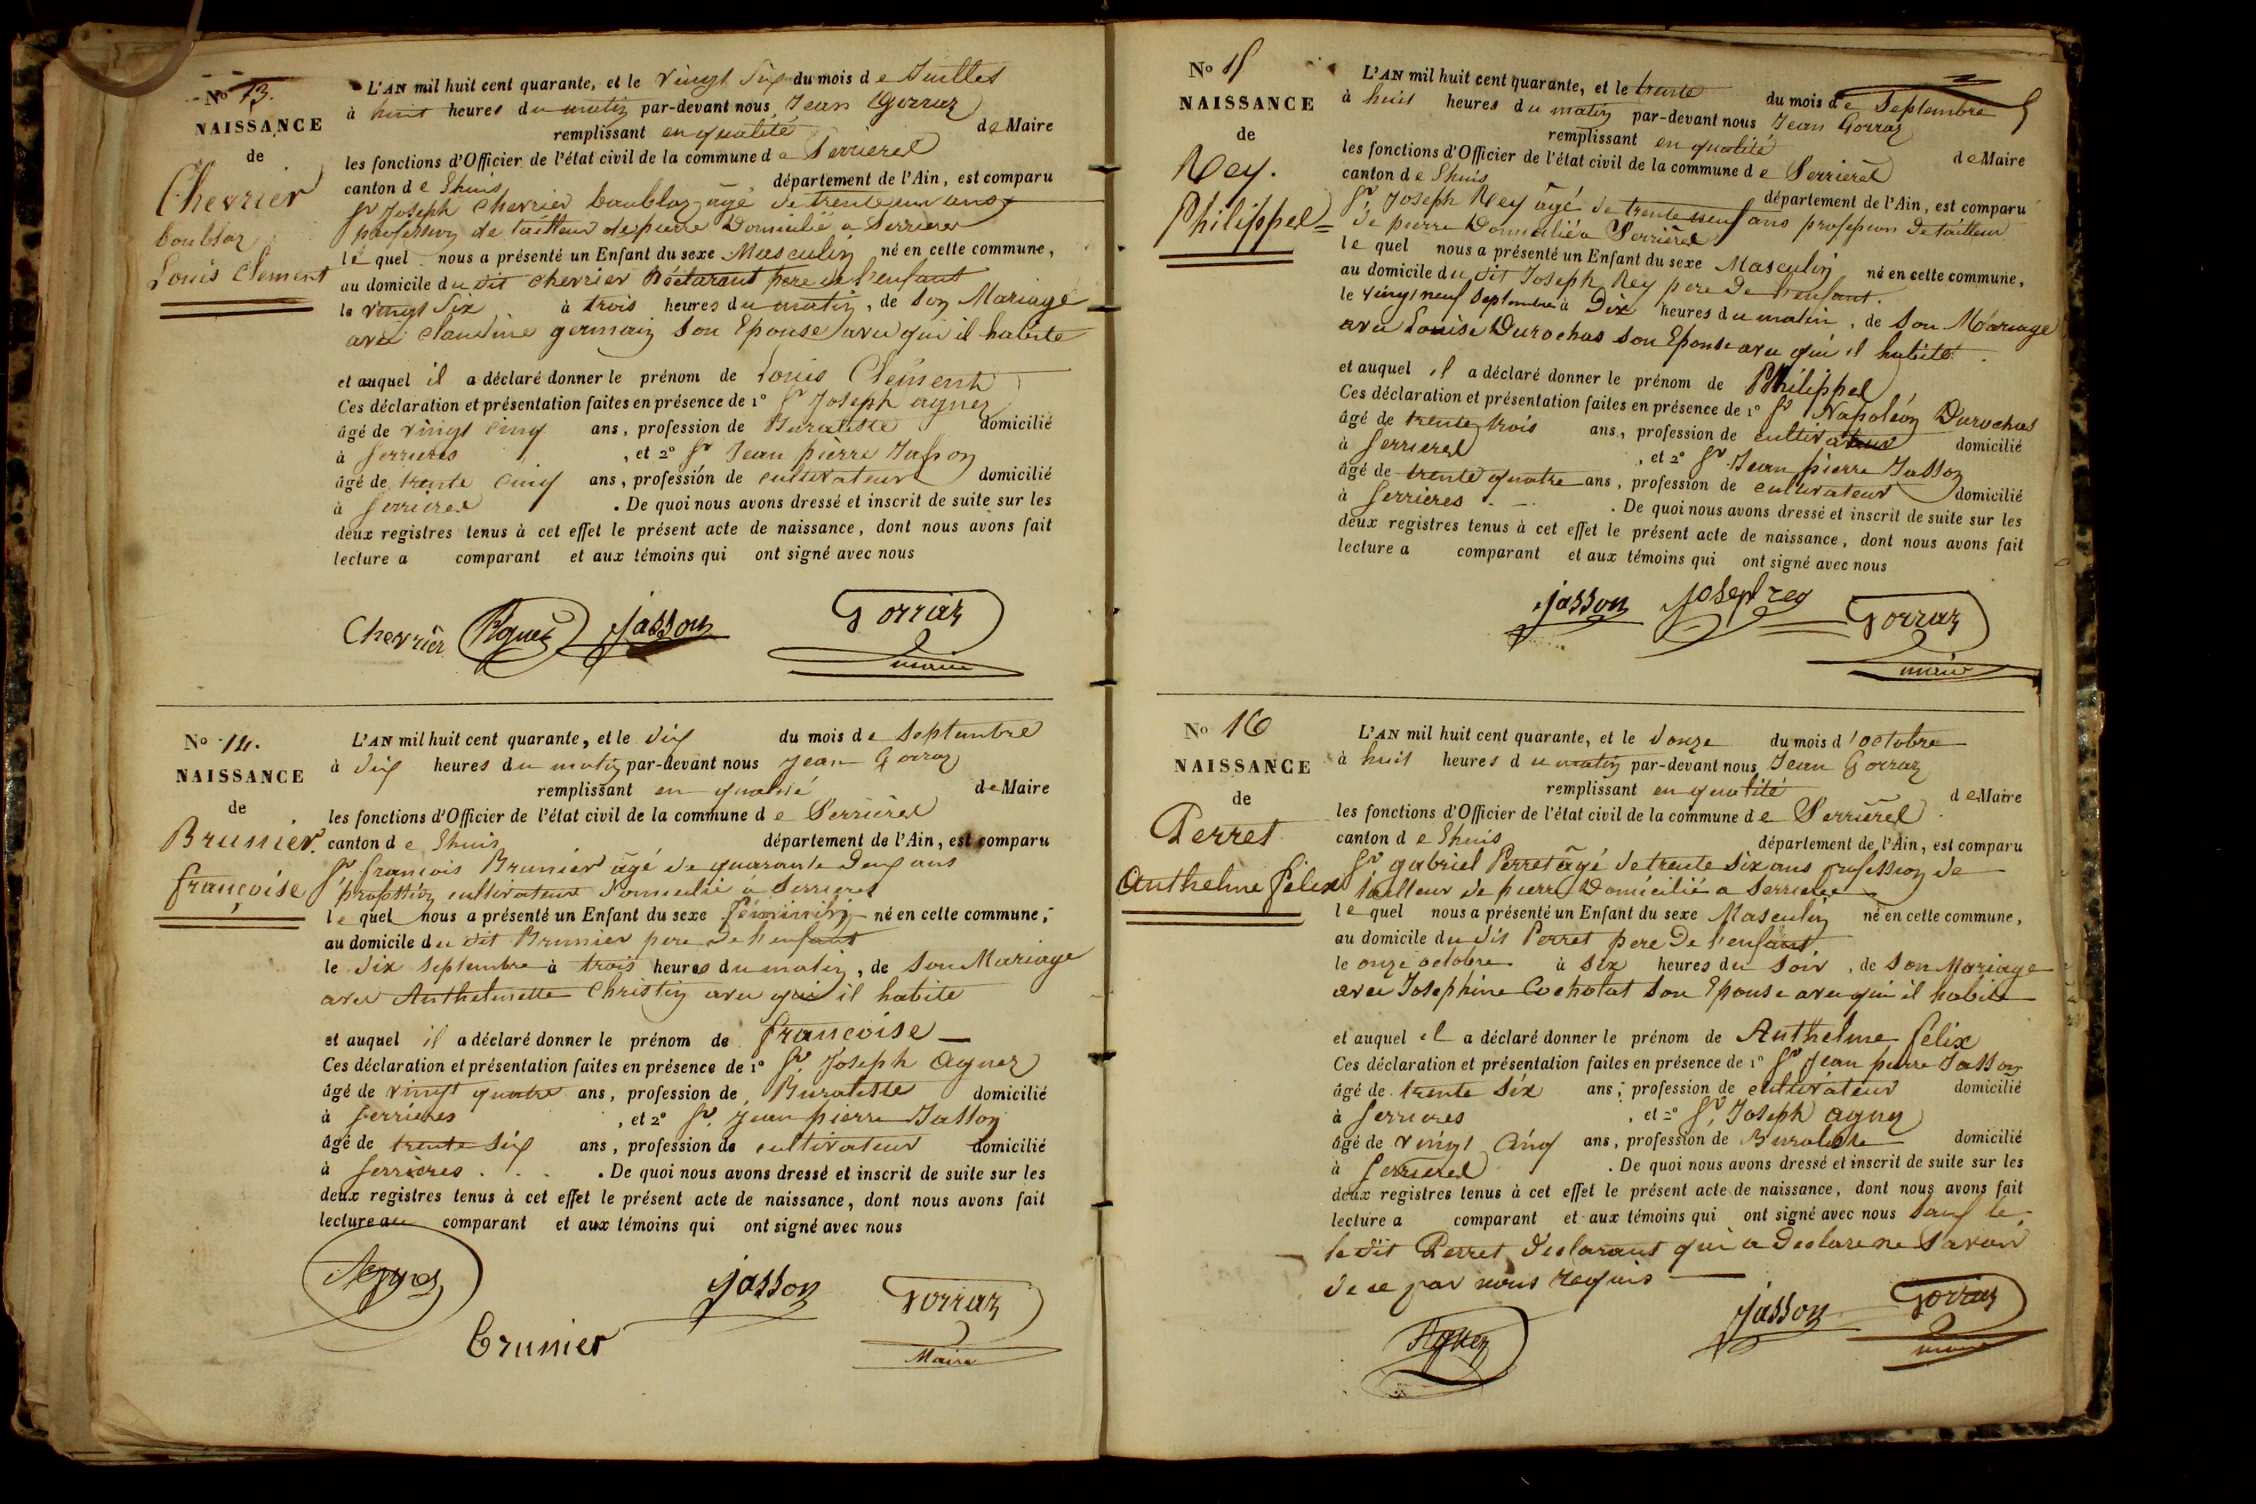 No 13.
NAISSANCE
de
Chevrier
boublaz
Louis Clement
L'AN mil huit cent quarante, et le vingt Six du mois de Juillet
à huit heures du matin par-devant nous Jean Gorraz
remplissant en qualité de Maire
les fonctions d'Officier de l'état civil de la commune de Serrieres
canton de Lhuis département de l'Ain, est comparu
Sr Joseph Chevrier boublaz agé de trente un ans
profession de tailleur de pierre Domicilié a Serrieres
lequel nous a présenté un Enfant du sexe Masculin né en cette commune,
au domicile du dit Chevrier Déclarant pere de l'enfant
le vingt Six à trois heures du matin, de son Mariage
avec Claudine germain son Epouse avec qui il habite
et auquel il a déclaré donner le prénom de Louis Clement
Ces déclaration et présentation faites en présence de 1° Sr Joseph agnez
âgé de vingt cinq ans, profession de Buraliste domicilié
à Serrieres, et 2° Sr Jean pierre Jasson
âgé de trente cinq ans, profession de cultivateur domicilié
à Serrieres. De quoi nous avons dressé et inscrit de suite sur les
deux registres tenus à cet effet le présent acte de naissance, dont nous avons fait
lecture a comparant et aux témoins qui ont signé avec nous
Chevrier Agnez Jasson Gorraz
maire
No 14.
NAISSANCE
de
Brunier
françoise
L'AN mil huit cent quarante, et le dix du mois de Septembre
à dix heures du matin par-devant nous Jean Gorraz
remplissant en qualité de Maire
les fonctions d'Officier de l'état civil de la commune de Serrieres
canton de Lhuis département de l'Ain, est comparu
Sr francois Brunier agé de quarante Deux ans
profession cultivateur Domicilié a Serrieres
lequel nous a présenté un Enfant du sexe féminin né en cette commune,
au domicile du dit Brunier pere De l'enfant
le dix septembre à trois heures du matin, de son Mariage
avec Anthelmette Christin avec qui il habite
et auquel il a déclaré donner le prénom de francoise
Ces déclaration et présentation faites en présence de 1° Sr Joseph Agnez
âgé de vingt quatre ans, profession de Buraliste domicilié
à Serrieres, et 2° Sr Jean pierre Jasson
âgé de trente Six ans, profession de cultivateur domicilié
à Serrieres. De quoi nous avons dressé et inscrit de suite sur les
deux registres tenus à cet effet le présent acte de naissance, dont nous avons fait
lecture au comparant et aux témoins qui ont signé avec nous
Agnez Jasson Gorraz
brunier Maire
No 15
NAISSANCE
de
Rey.
Philippe
L'AN mil huit cent quarante, et le trente du mois de Septembre
à huit heures du matin par-devant nous Jean Gorraz
remplissant en qualité de Maire
les fonctions d'Officier de l'état civil de la commune de Serrieres
canton de Lhuis département de l'Ain, est comparu
Sr Joseph Rey âgé de trente neuf ans profession de tailleur
de pierre Domicilié a Serrieres
lequel nous a présenté un Enfant du sexe Masculin né en cette commune,
au domicile du dit Joseph Rey pere De l'enfant.
le vingt neuf Septembre à Dix heures du matin, de son Mariage
avec Louise Durochas son Epouse avec qui il habite
et auquel il a déclaré donner le prénom de Philippe
Ces déclaration et présentation faites en présence de 1° Sr Napoléon Durochas
âgé de trente trois ans, profession de cultivateur domicilié
à Serrieres, et 2° Sr Jean pierre Jasson
âgé de trente quatre ans, profession de cultivateur domicilié
à Serrieres. De quoi nous avons dressé et inscrit de suite sur les
deux registres tenus à cet effet le présent acte de naissance, dont nous avons fait
lecture a comparant et aux témoins qui ont signé avec nous
Jasson Joseph rey Gorraz
maire
No 16
NAISSANCE
de
Perret
Anthelme félix
L'AN mil huit cent quarante, et le douze du mois d'octobre
à huit heures du matin par-devant nous Jean Gorraz
remplissant en qualité de Maire
les fonctions d'Officier de l'état civil de la commune de Serrieres
canton de Lhuis département de l'Ain, est comparu
Sr gabriel Perret âgé de trente six ans profession de
tailleur de pierre Domicilié a Serrieres
lequel nous a présenté un Enfant du sexe Masculin né en cette commune,
au domicile du dit Perret pere De l'enfant
le onze octobre à six heures du soir, de son Mariage
avec Josephine Cocholat son Epouse avec qui il habite
et auquel il a déclaré donner le prénom de Anthelme félix
Ces déclaration et présentation faites en présence de 1° Sr Jean pierre Jasson
âgé de trente six ans, profession de cultivateur domicilié
à Serrieres, et 2° Sr Joseph agnez
âgé de vingt cinq ans, profession de Buraliste domicilié
à Serrieres. De quoi nous avons dressé et inscrit de suite sur les
deux registres tenus à cet effet le présent acte de naissance, dont nous avons fait
lecture a comparant et aux témoins qui ont signé avec nous sauf le
le dit Perret déclarant qui a declare ne savoir
de ce par nous requis
Agnez Jasson Gorraz
maire